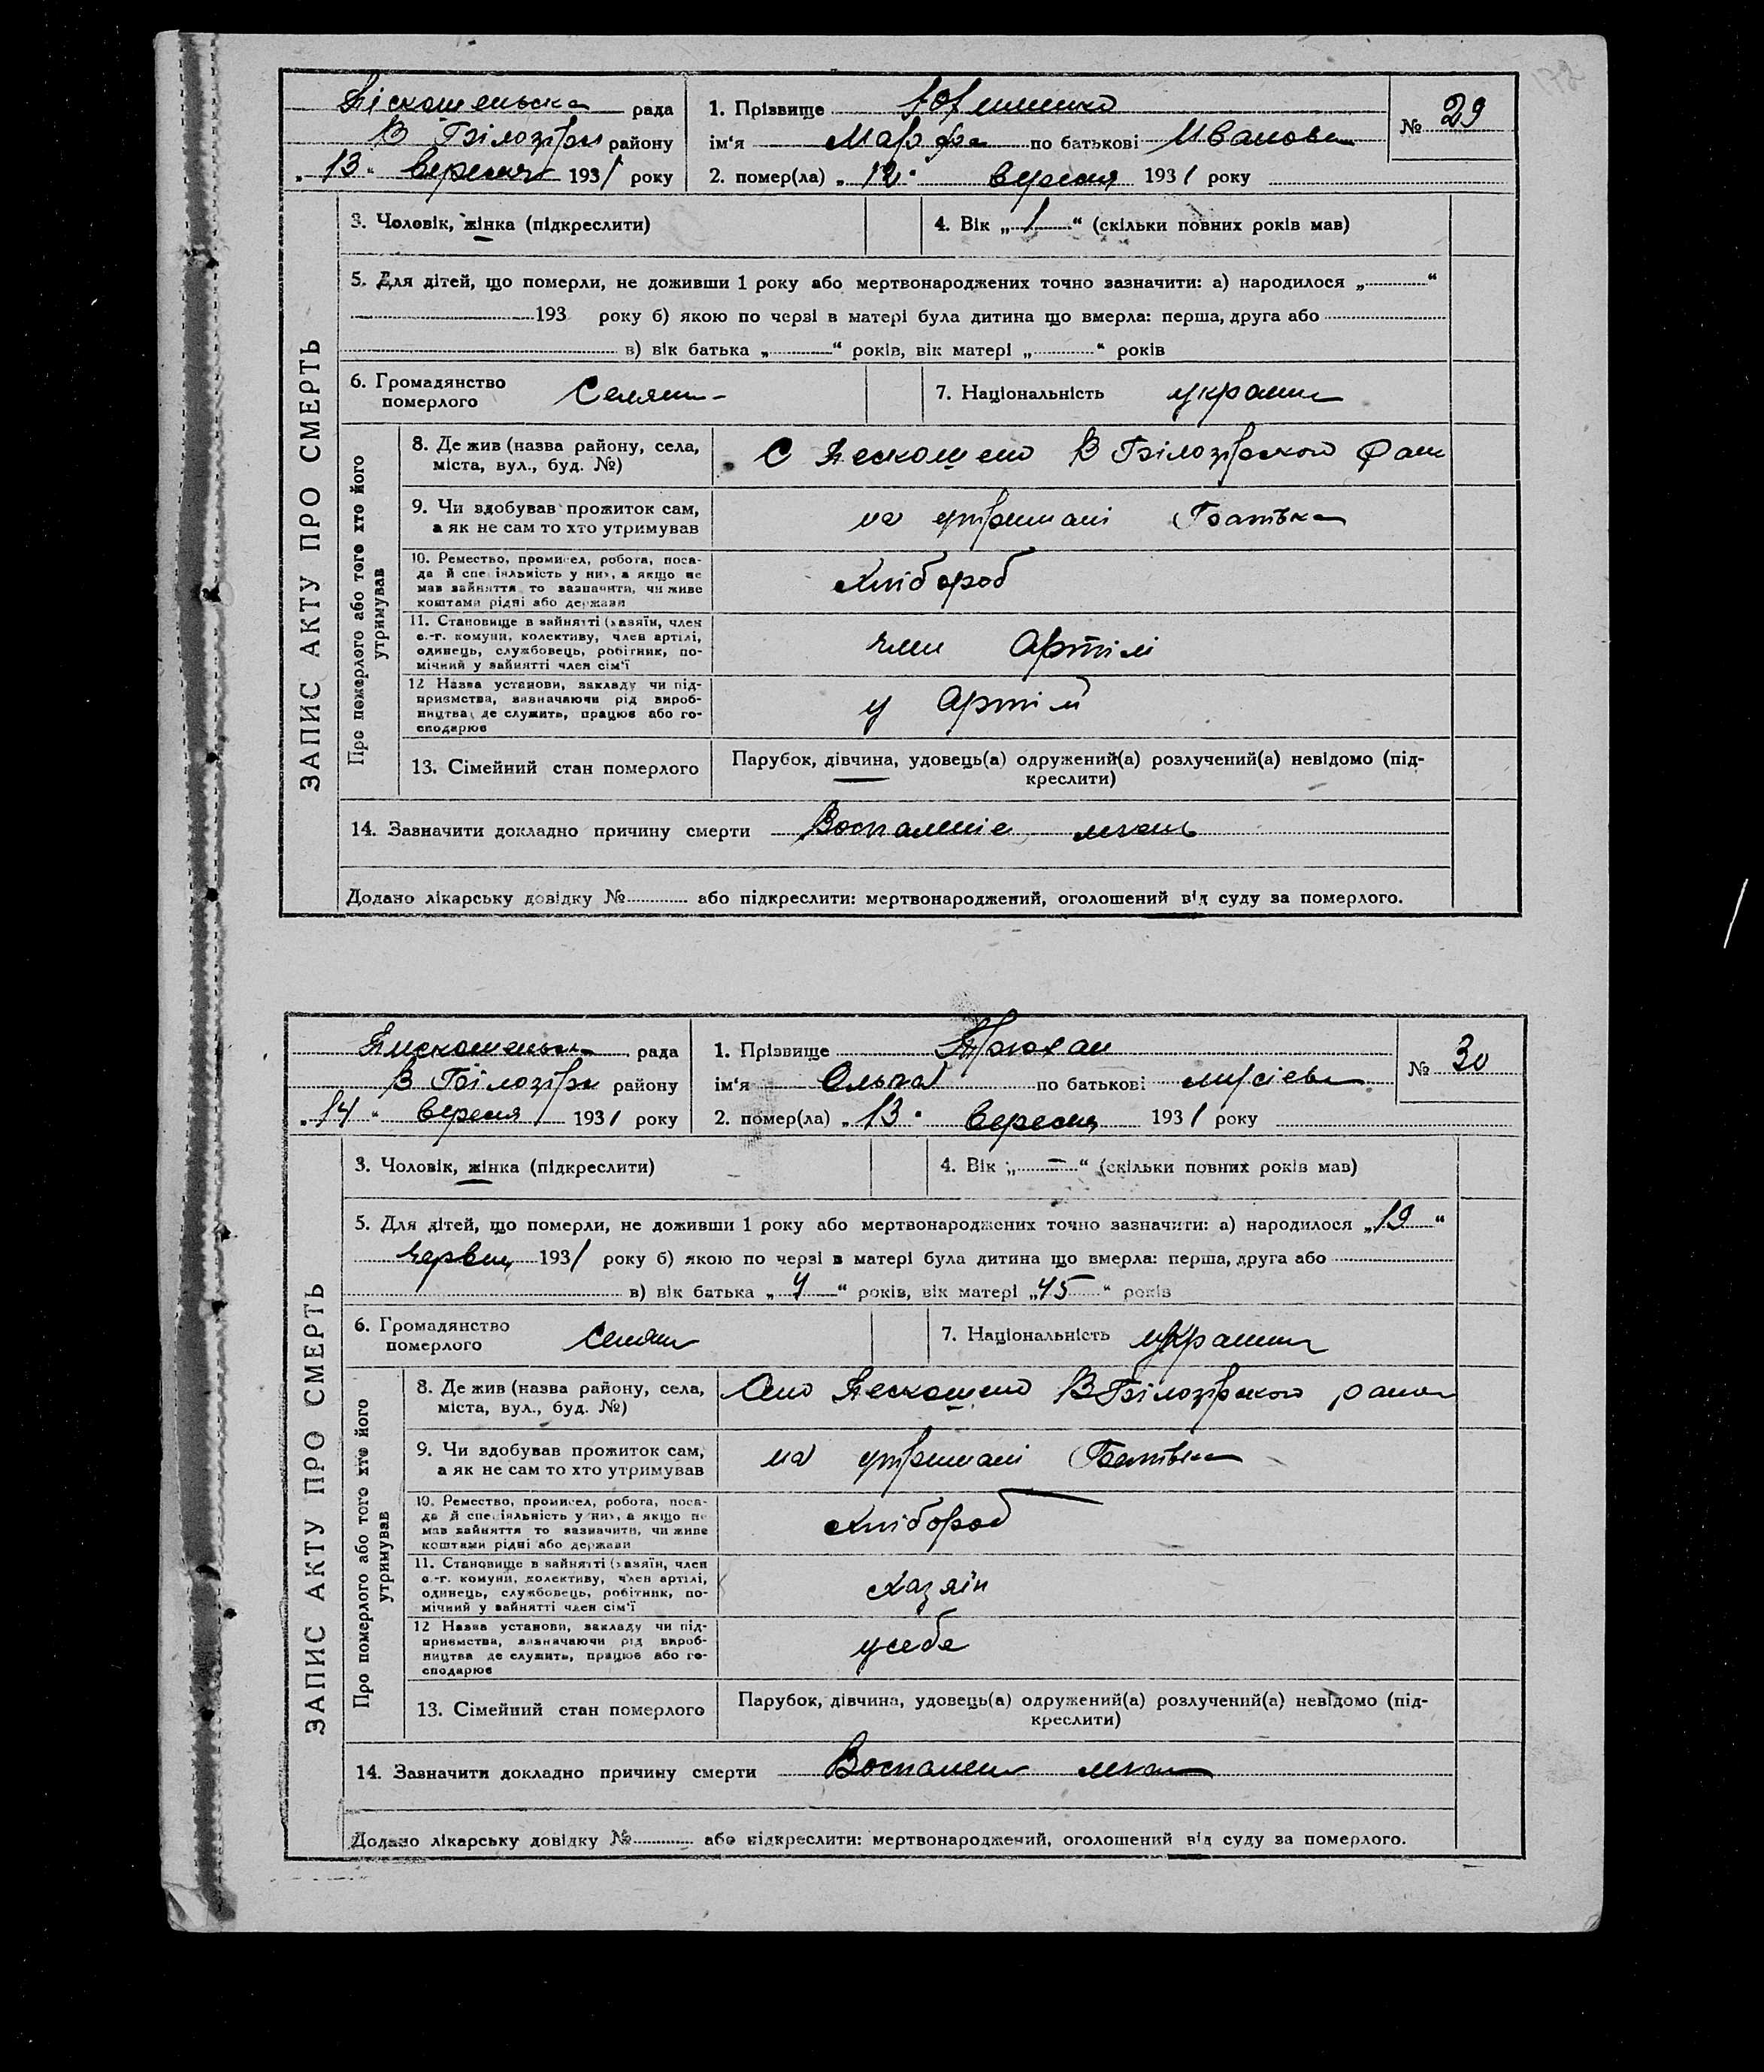 172
Піскошенська рада
В Білозірки району
„13“ вересня 1931 року
1. Прізвище
ім‘я Марфа по батькові Иванова
2. помер(ла) „12“ вересня 1931 року
№ 29
ЗАПИС АКТУ ПРО СМЕРТЬ
3. Чоловік, жінка (підкреслити)
4. Вік „1“ (скільки повних років мав)
5. Для дітей, що померли, не доживши 1 року або мертвонароджених точно зазначити: а) народилося „ “
193 року б) якою по черзі в матері була дитина що вмерла: перша, друга або
в) вік батька „ “ років, вік матері „ “ років
6. Громадянство
померлого Селян
7. Національність украин
Про померлого або того хто його
утримував
8. Де жив (назва району, села,
міста, вул., буд. №)
С Пескошено В Білозірского Раи
9. Чи здобував прожиток сам,
а як не сам то хто утримував
на утримані Батька
10. Ремество, промисел, робота, поса-
да й спеціяльність у них, а якщо не
мав зайняття то зазначити, чи живе
коштами рідні або держави
Хлібороб
11. Становище в зайнятті (хазяїн, член
с.-г. комуни, колективу, член артілі,
одинець, службовець, робітник, по-
мічний у зайнятті член сім‘ї
член Артілі
12 Назва установи, закладу чи під-
приємства, зазначаючи рід вироб-
ництва, де служить, працює або го-
сподарює
у Артілі
13. Сімейний стан померлого
Парубок, дівчина, удовець(а) одружений(а) розлучений(а) невідомо (під-
креслити)
14. Зазначити докладно причину смерти Воспаленіе
Додано лікарську довідку № або підкреслити: мертвонароджений, оголошений від суду за померлого.
Пискошенська рада
В Білозірки району
„14“ вересня 1931 року
1. Прізвище Трохан
ім‘я Ольга по батькові мусієва
2. помер(ла) „13“ вересня 1931 року
№ 30
ЗАПИС АКТУ ПРО СМЕРТЬ
3. Чоловік, жінка (підкреслити)
4. Вік „–“ (скільки повних років мав)
5. Для дітей, що померли, не доживши 1 року або мертвонароджених точно зазначити: а) народилося „19“
червня 1931 року б) якою по черзі в матері була дитина що вмерла: перша, друга або
в) вік батька „ “ років, вік матері „45“ років
6. Громадянство
померлого Селян
7. Національність украин
Про померлого або того хто його
утримував
8. Де жив (назва району, села,
міста, вул., буд. №)
Село Пескошено В Білозірского раион
9. Чи здобував прожиток сам,
а як не сам то хто утримував
на утримані Батька
10. Ремество, промисел, робота, поса-
да й спеціяльність у них, а якщо не
мав зайняття то зазначити, чи живе
коштами рідні або держави
Хлібороб
11. Становище в зайнятті (хазяїн, член
с.-г. комуни, колективу, член артілі,
одинець, службовець, робітник, по-
мічний у зайнятті член сім‘ї
Хазяїн
12 Назва установи, закладу чи під-
приємства, зазначаючи рід вироб-
ництва де служить, працює або го-
сподарює
усебе
13. Сімейний стан померлого
Парубок, дівчина, удовець(а) одружений(а) розлучений(а) невідомо (під-
креслити)
14. Зазначити докладно причину смерти Воспален
Додано лікарську довідку № або підкреслити: мертвонароджений, оголошений від суду за померлого.